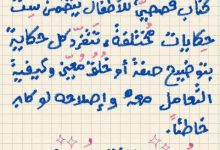 كتاب قصصيّ للأطفال يتضمن ست
حكايات مختلفة، تنفرد كل حكاية
بتوضيح صفة أو خلق معيّن وكيفية
التعامل معه وإصلاحه لو كان
خاطئاً.